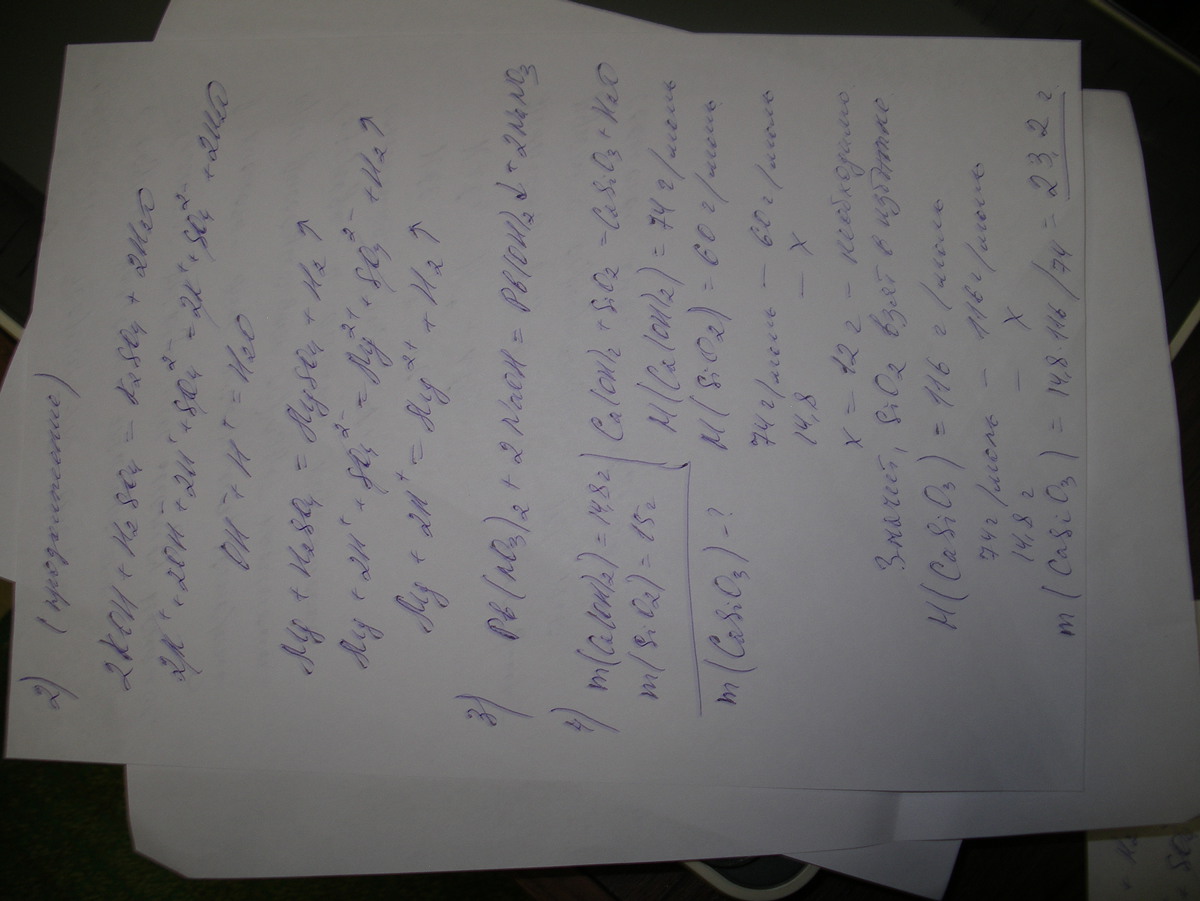 2) (продолжение)
2KOH + H2SO4 = K2SO4 + 2H2O
2K⁺ + 2OH⁻ + 2H⁺ + SO4²⁻ = 2K⁺ + SO4²⁻ + 2H2O
OH⁻ + H⁺ = H2O
Mg + H2SO4 = MgSO4 + H2↑
Mg + 2H⁺ + SO4²⁻ = Mg²⁺ + SO4²⁻ + H2↑
Mg + 2H⁺ = Mg²⁺ + H2↑
3) Pb(NO3)2 + 2NaOH = Pb(OH)2↓ + 2NaNO3
4) m(Ca(OH)2) = 14,8 г
m(SiO2) = 15 г
m(CaSiO3) - ?
Ca(OH)2 + SiO2 = CaSiO3 + H2O
M(Ca(OH)2) = 74 г/моль
M(SiO2) = 60 г/моль
74 г/моль – 60 г/моль
14,8 – x
x = 12 г – необходимо
Значит, SiO2 взят в избытке
M(CaSiO3) = 116 г/моль
74 г/моль – 116 г/моль
14,8 г – x
m(CaSiO3) = 14,8·116/74 = 23,2 г.
+ H2